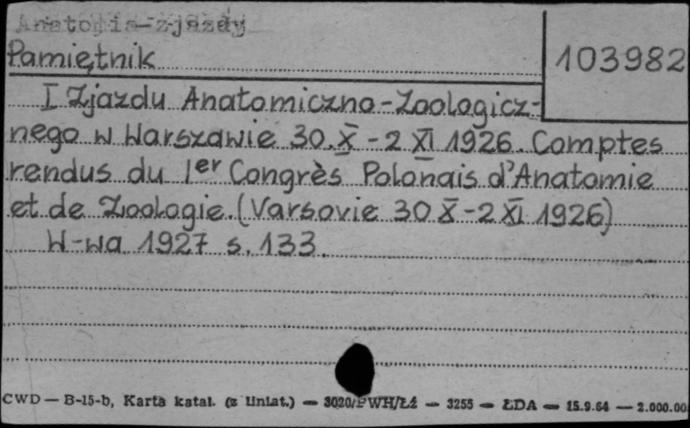 Anatomia-zjazdy
Pamiętnik
103982
I Zjazdu Anatomiczno-Zoologicz-
nego w Warszawie 30.X-2 XI 1926. Comptes
rendus du 1er Congrès Polonais d'Anatomie
et de Zoologie. (Varsovie 30 X-2 XI 1926)
W-wa 1927 s. 133.
CWD — B-15-b, Karta katal. (z liniat.) — 3020/PWH/Łź — 3255 — ŁDA — 15.9.64 — 2.000.00